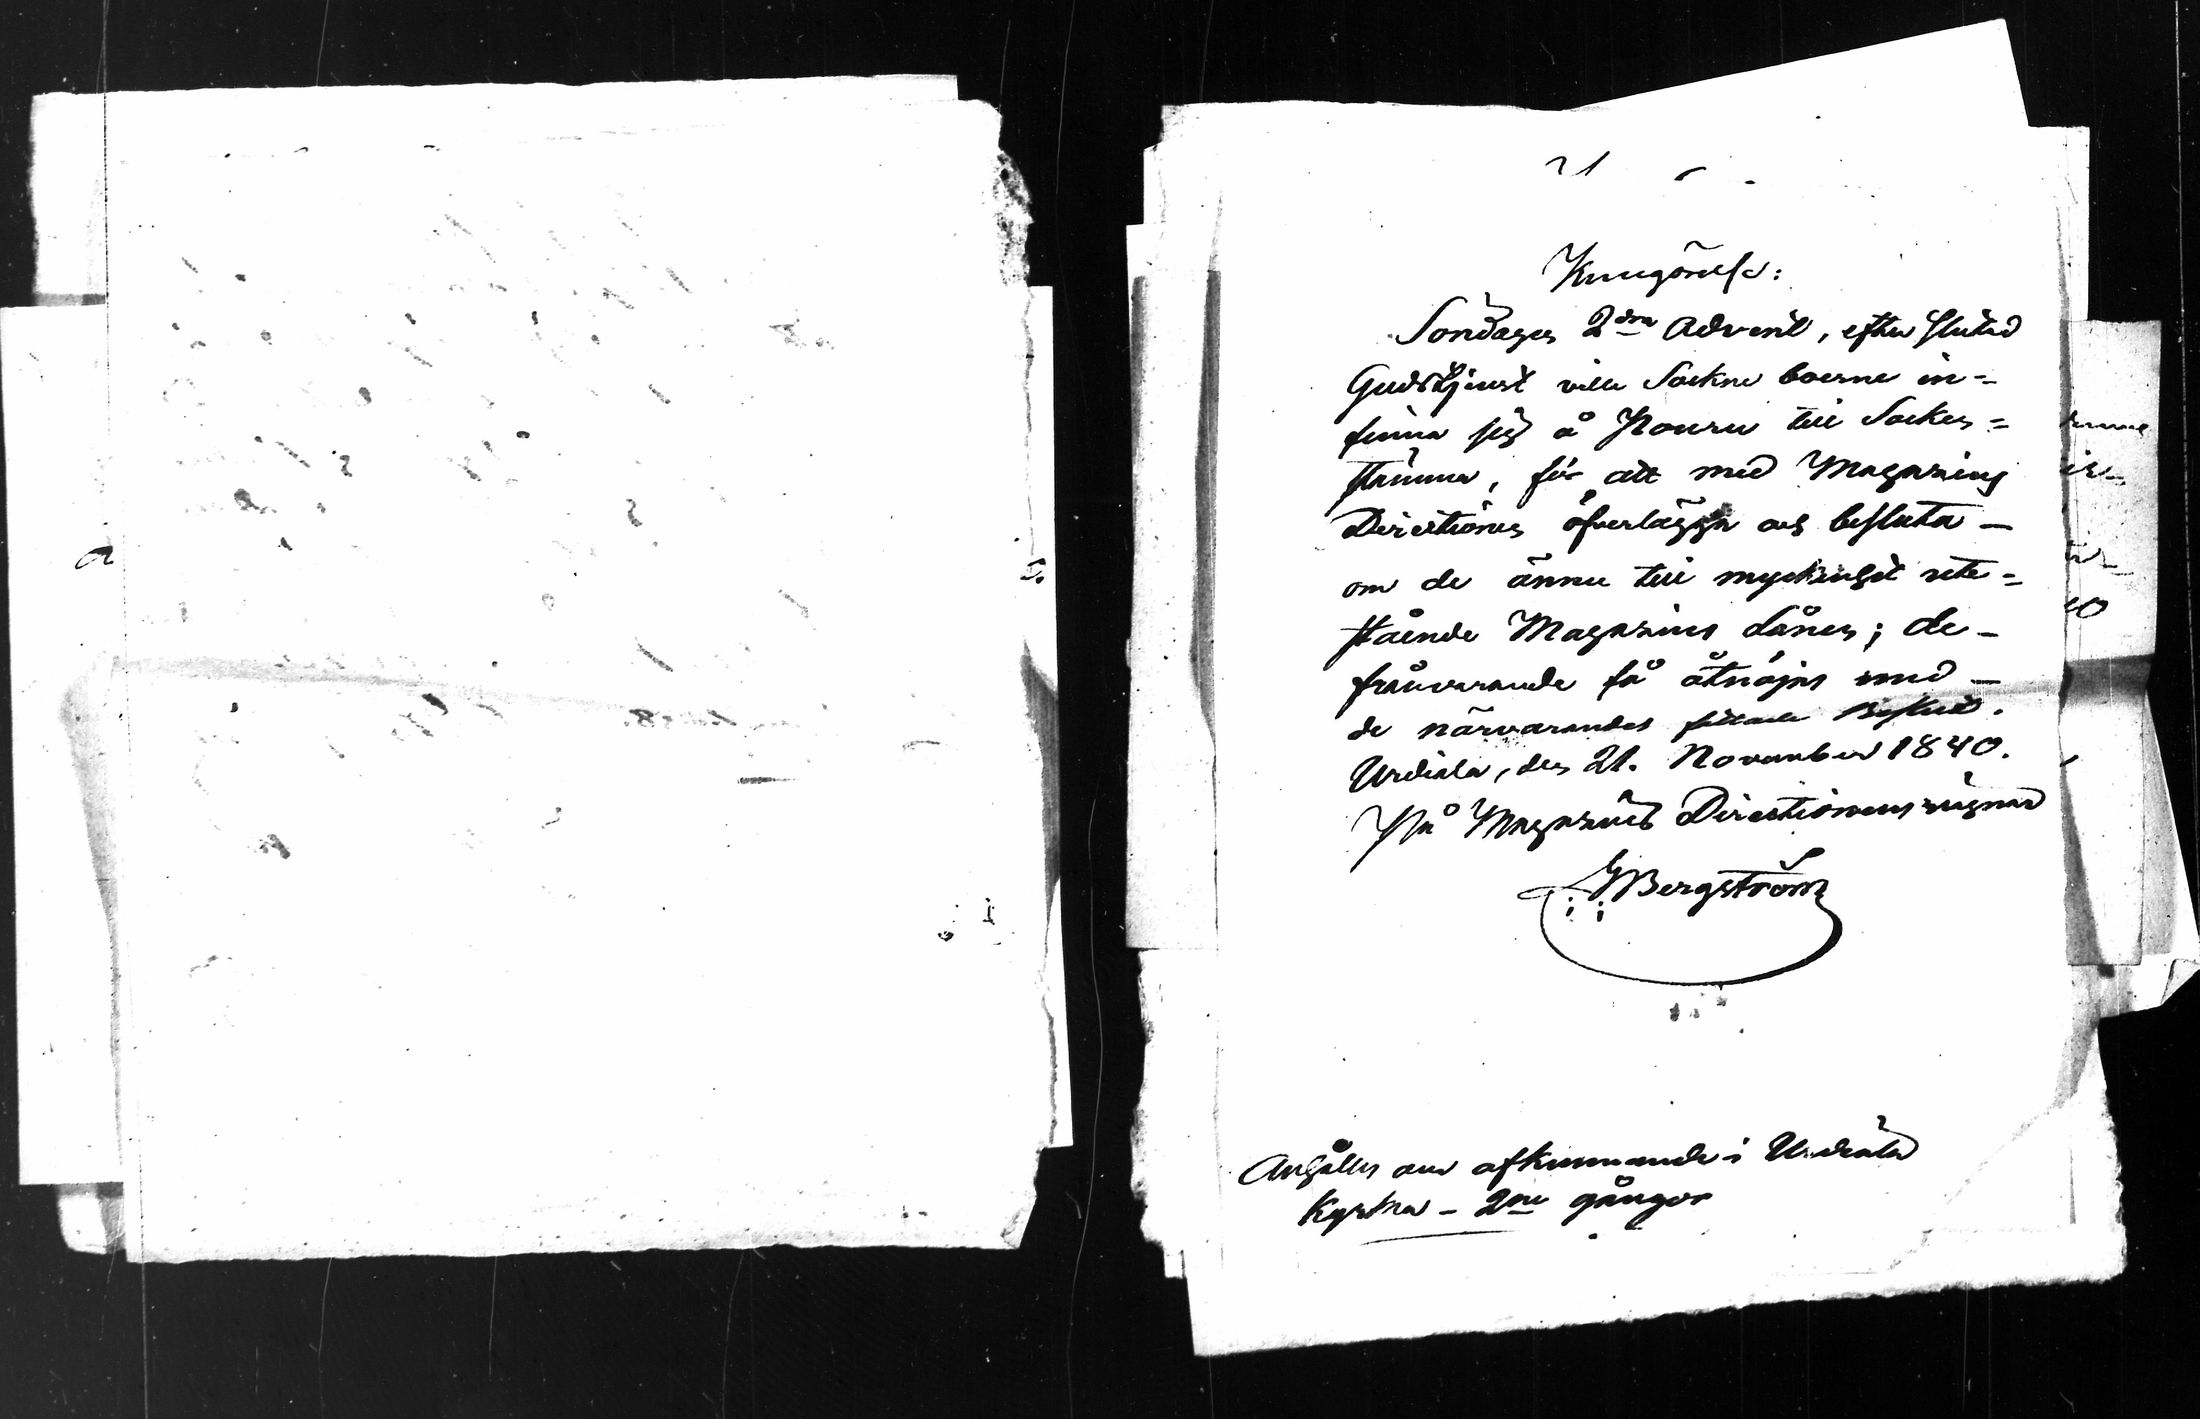 21
Kungörelse:
Söndagen 2dra Advent, efter slutad
Gudstjenst ville Sockne boerne in=
finna sig å Honru till Socken=
stämma, för att med Magasins
Directionen öfverlägga och besluta —
om de ännu till myckenhet ute=
stående Magasins Lånen; de —
frånvarande få åtnöjas med —
de närvarandes fattade Beslut.
Urdiala, den 21. November 1840.
På Magasins Directionens vägnar
GBergström
Anhålles om afkunnande i Urdiala
Kyrka – 2ne gånger